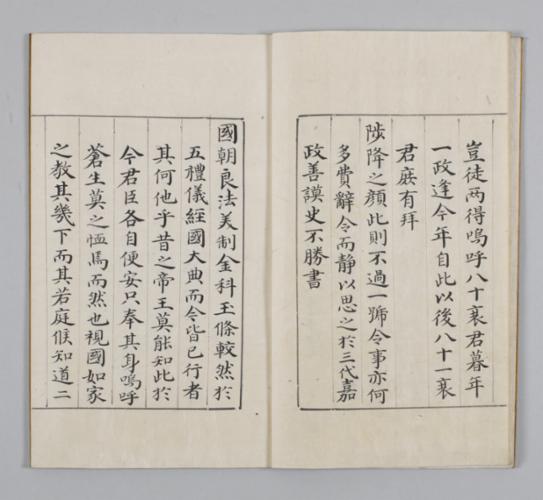 豈徒兩得嗚呼八十衰君暮年
一政逢今年自此以後八十一衰
君庶有拜
陟降之顔此則不過一號令事亦何
多費辭令而靜以思之於三代嘉
政善謨史不勝書
國朝良法美制金科玉條較然於
五禮儀經國大典而今皆已行者
其何他乎昔之帝王莫能知此於
今君臣各自便安只奉其身嗚呼
蒼生莫之恤焉而然也視國如家
之教其幾下而其若庭候知道二